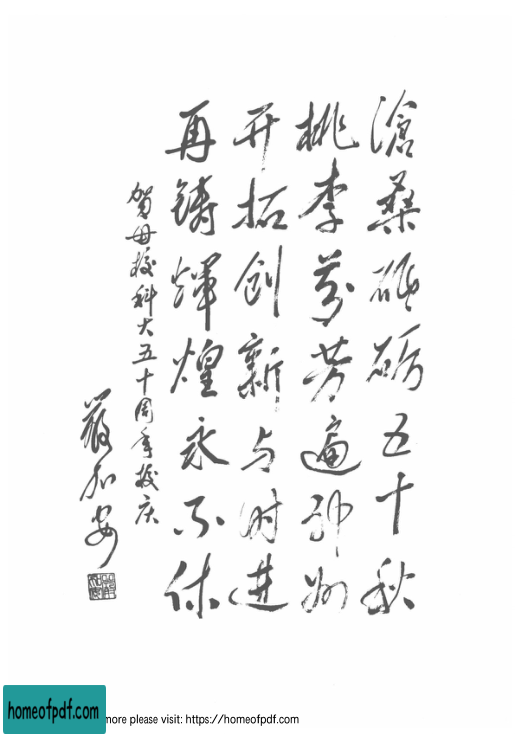 滄桑砥砺五十秋
桃李芬芳遍神州
开拓创新与时进
再铸輝煌永不休
贺母校科大五十周年校庆
嚴加安
homeofpdf.com
more please visit: https://homeofpdf.com